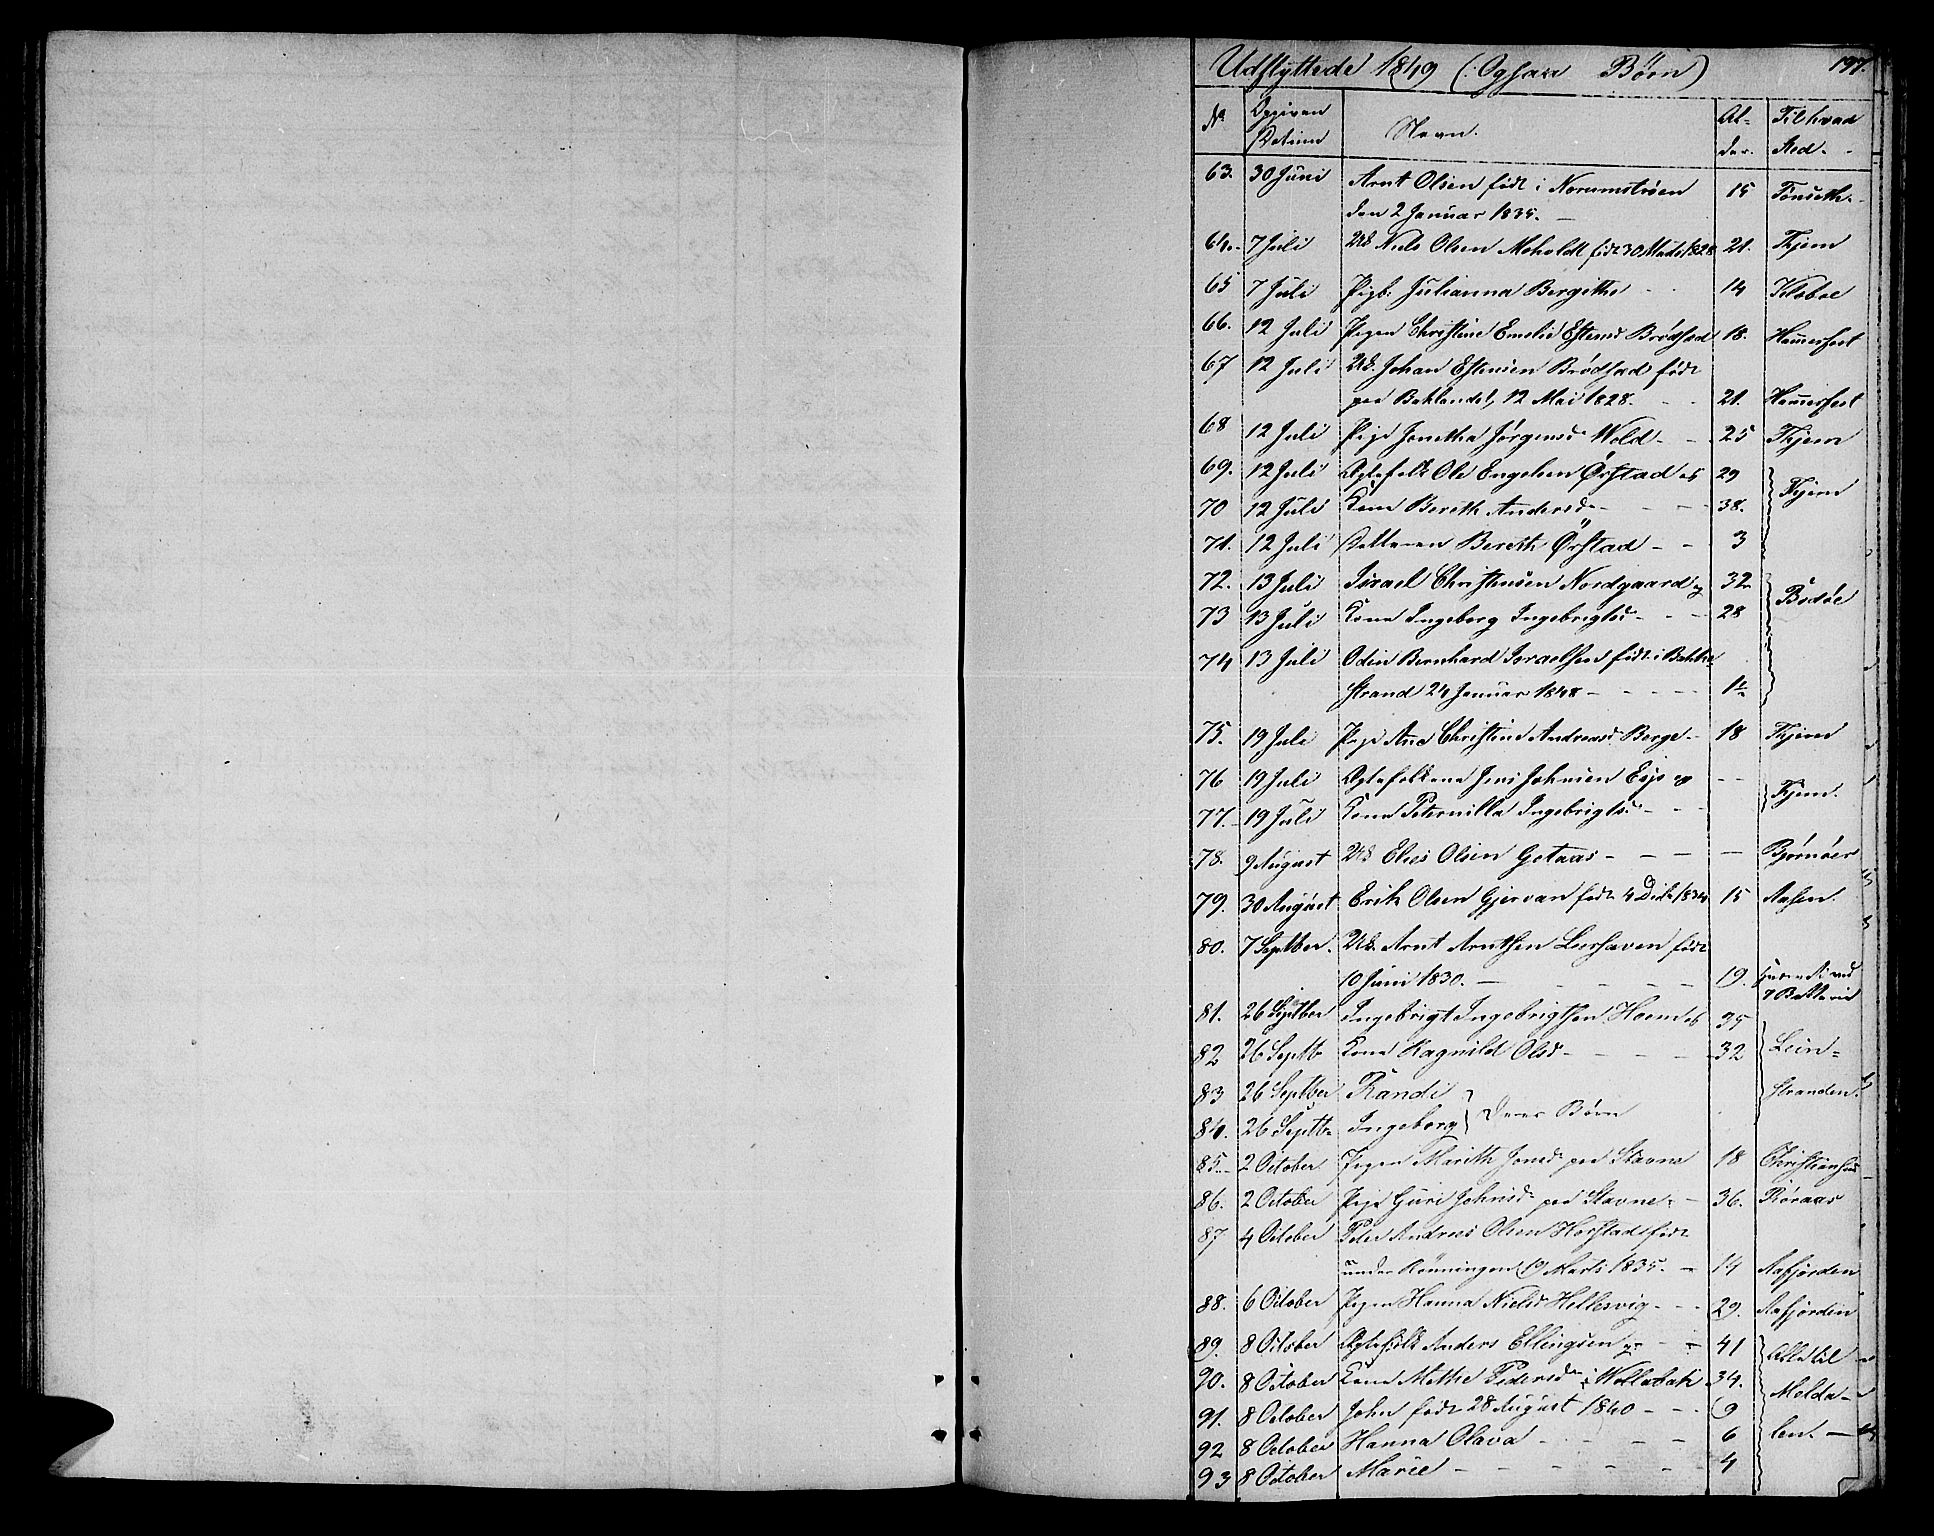 Udflyttede 1849 (: Ogsaa Børn) 197.
No Opgiven Datum Navn. Alder. Til hvad Sted.
63. 30 Juni Arnt Olsen født i Norumstrøen 15 Tønseth.
den 2 Januar 1835.
64. 7 Juli Uk Niels Olsen Moholdt født 30 1828 21. Thjem
65 7 Juli Pigb. Julianna Bergithe 14 Klæboe
66. 12 Juli Pigen Christine Emelie Estensd Brødstad 18. Hammerfest
67 12 Juli Uk. Johan Estensen Brødstad født
paa Baklandet, 12 Mai 1828. 21. Hammerfest
68 12 Juli Pige Jonetha Jørgensd. Wold 25 Thjem
69. 12 Juli Ægtefolk Ole Engelsen Ørstad og 29
70 12 Juli Kone Bereth Andersd. 38. Thjem
71. 12 Juli Datteren Bereth Ørstad 3
72. 13 Juli Israel Christensen Nordgaard og 32
73 13 Juli Kone Ingeborg Ingebrigtsd. 28 Bodøe
74 13 Juli Odin Bernhard Israelsen født i Bakke
Strand 24 Januar 1848 1½
75. 19 Juli Pige Ane Christine Andreasd. Berge 18 Thjem
76 19 Juli Ægtefolkene Jens Johnsen Esp og
77. 19 Juli Kone Peternilla Ingebrigtsd. Thjem.
78. 9 August Uk Elias Olsen Getaas Bjørnøer
79. 30 August Erik Olsen Gjervan født 4 Dec 1834 15 Aasen.
80. 7 Septber. Uk. Arnt Arntsen Leirhaven født
10 Juni 1830. 19. ved
7 Batterie
81. 26 Septber Ingebrigt Ingebrigtsen Hoem og 35
82 26 Septb Kone Ragnild Olsd 32 Lein=
83 26 Septber Randi
84. 26 Septb Ingeborg } deres Børn stranden.
85. 2 October Pigen Marith Jonsd. paa Stavne 18 Christiansund
86. 2 October Pige Guri Johnsd. paa Stavne 36. Røraas
87 4 October Peter Andreas Olsen Horstad født
under Rønningen 19 Marts 1835. 14 Aafjorden
88. 6 October Pigen Hanna Nielsd Hellesvig 29. Aafjorden
89. 8 October Ægtefolk Anders Ellingsen og 41 Alle til
90. 8 October Kone Methe Pedersd. i Wollabak 34. Molda=
91. 8 October John født 28 August 1840 9
92 8 October Hanna Olava 6 len.
93 8 October Marie 4